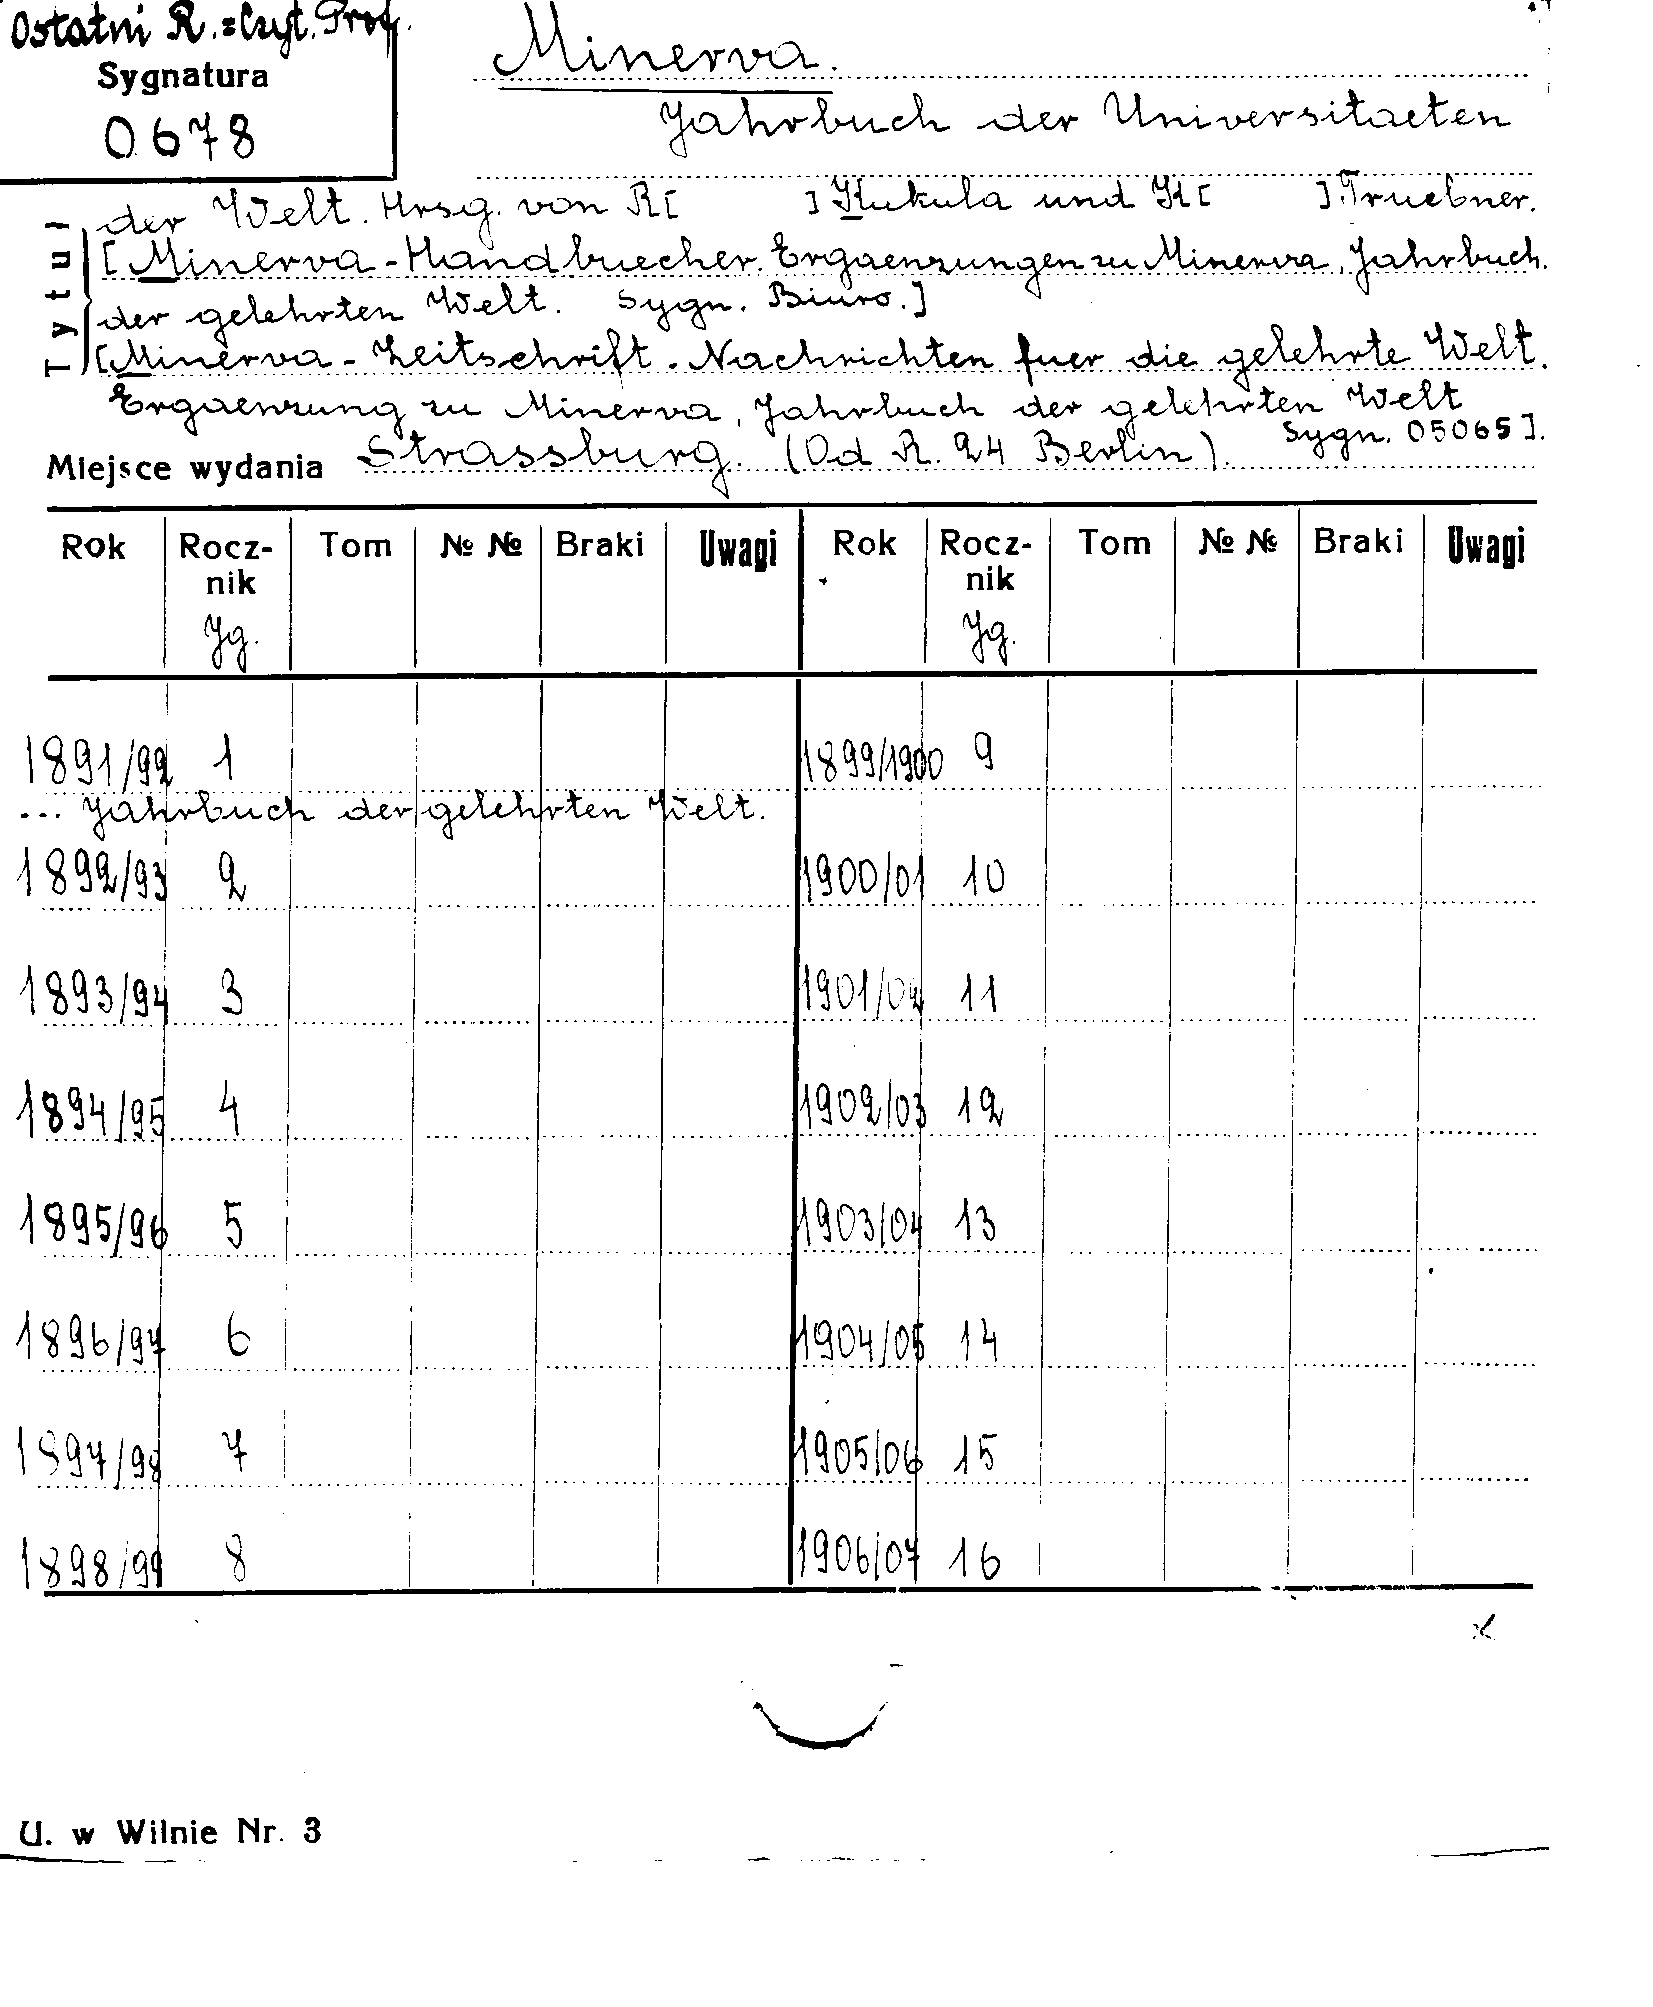 Ostatni R. = Czyt. Prof.
Sygnatura
0678
Minerva.
Jahrbuch der Universitaeten
der Welt. Hrsg. von R[ ] Kukula und K[ ] Truebner.
[Minerva-Handbuecher. Ergaenzungen zu Minerva, Jahrbuch.
der gelehrten Welt. Sygn. Biuro.]
[Minerva-Zeitschrift. Nachrichten fuer die gelehrte Welt.
Ergaenzung zu Minerva, Jahrbuch der gelehrten Welt
Sygn. 05065].
Tytuł
Miejsce wydania Strassburg. (Od R. 24 Berlin).
Rok Rocz-nik Tom № № Braki Uwagi Rok Rocz-nik Tom № № Braki Uwagi
Jg. Jg.
1891/92 1 1899/1900 9
... Jahrbuch der gelehrten Welt.
1892/93 2 1900/01 10
1893/94 3 1901/02 11
1894/95 4 1902/03 12
1895/96 5 1903/04 13
1896/97 6 1904/05 14
1897/98 7 1905/06 15
1898/99 8 1906/07 16
U. w Wilnie Nr. 3